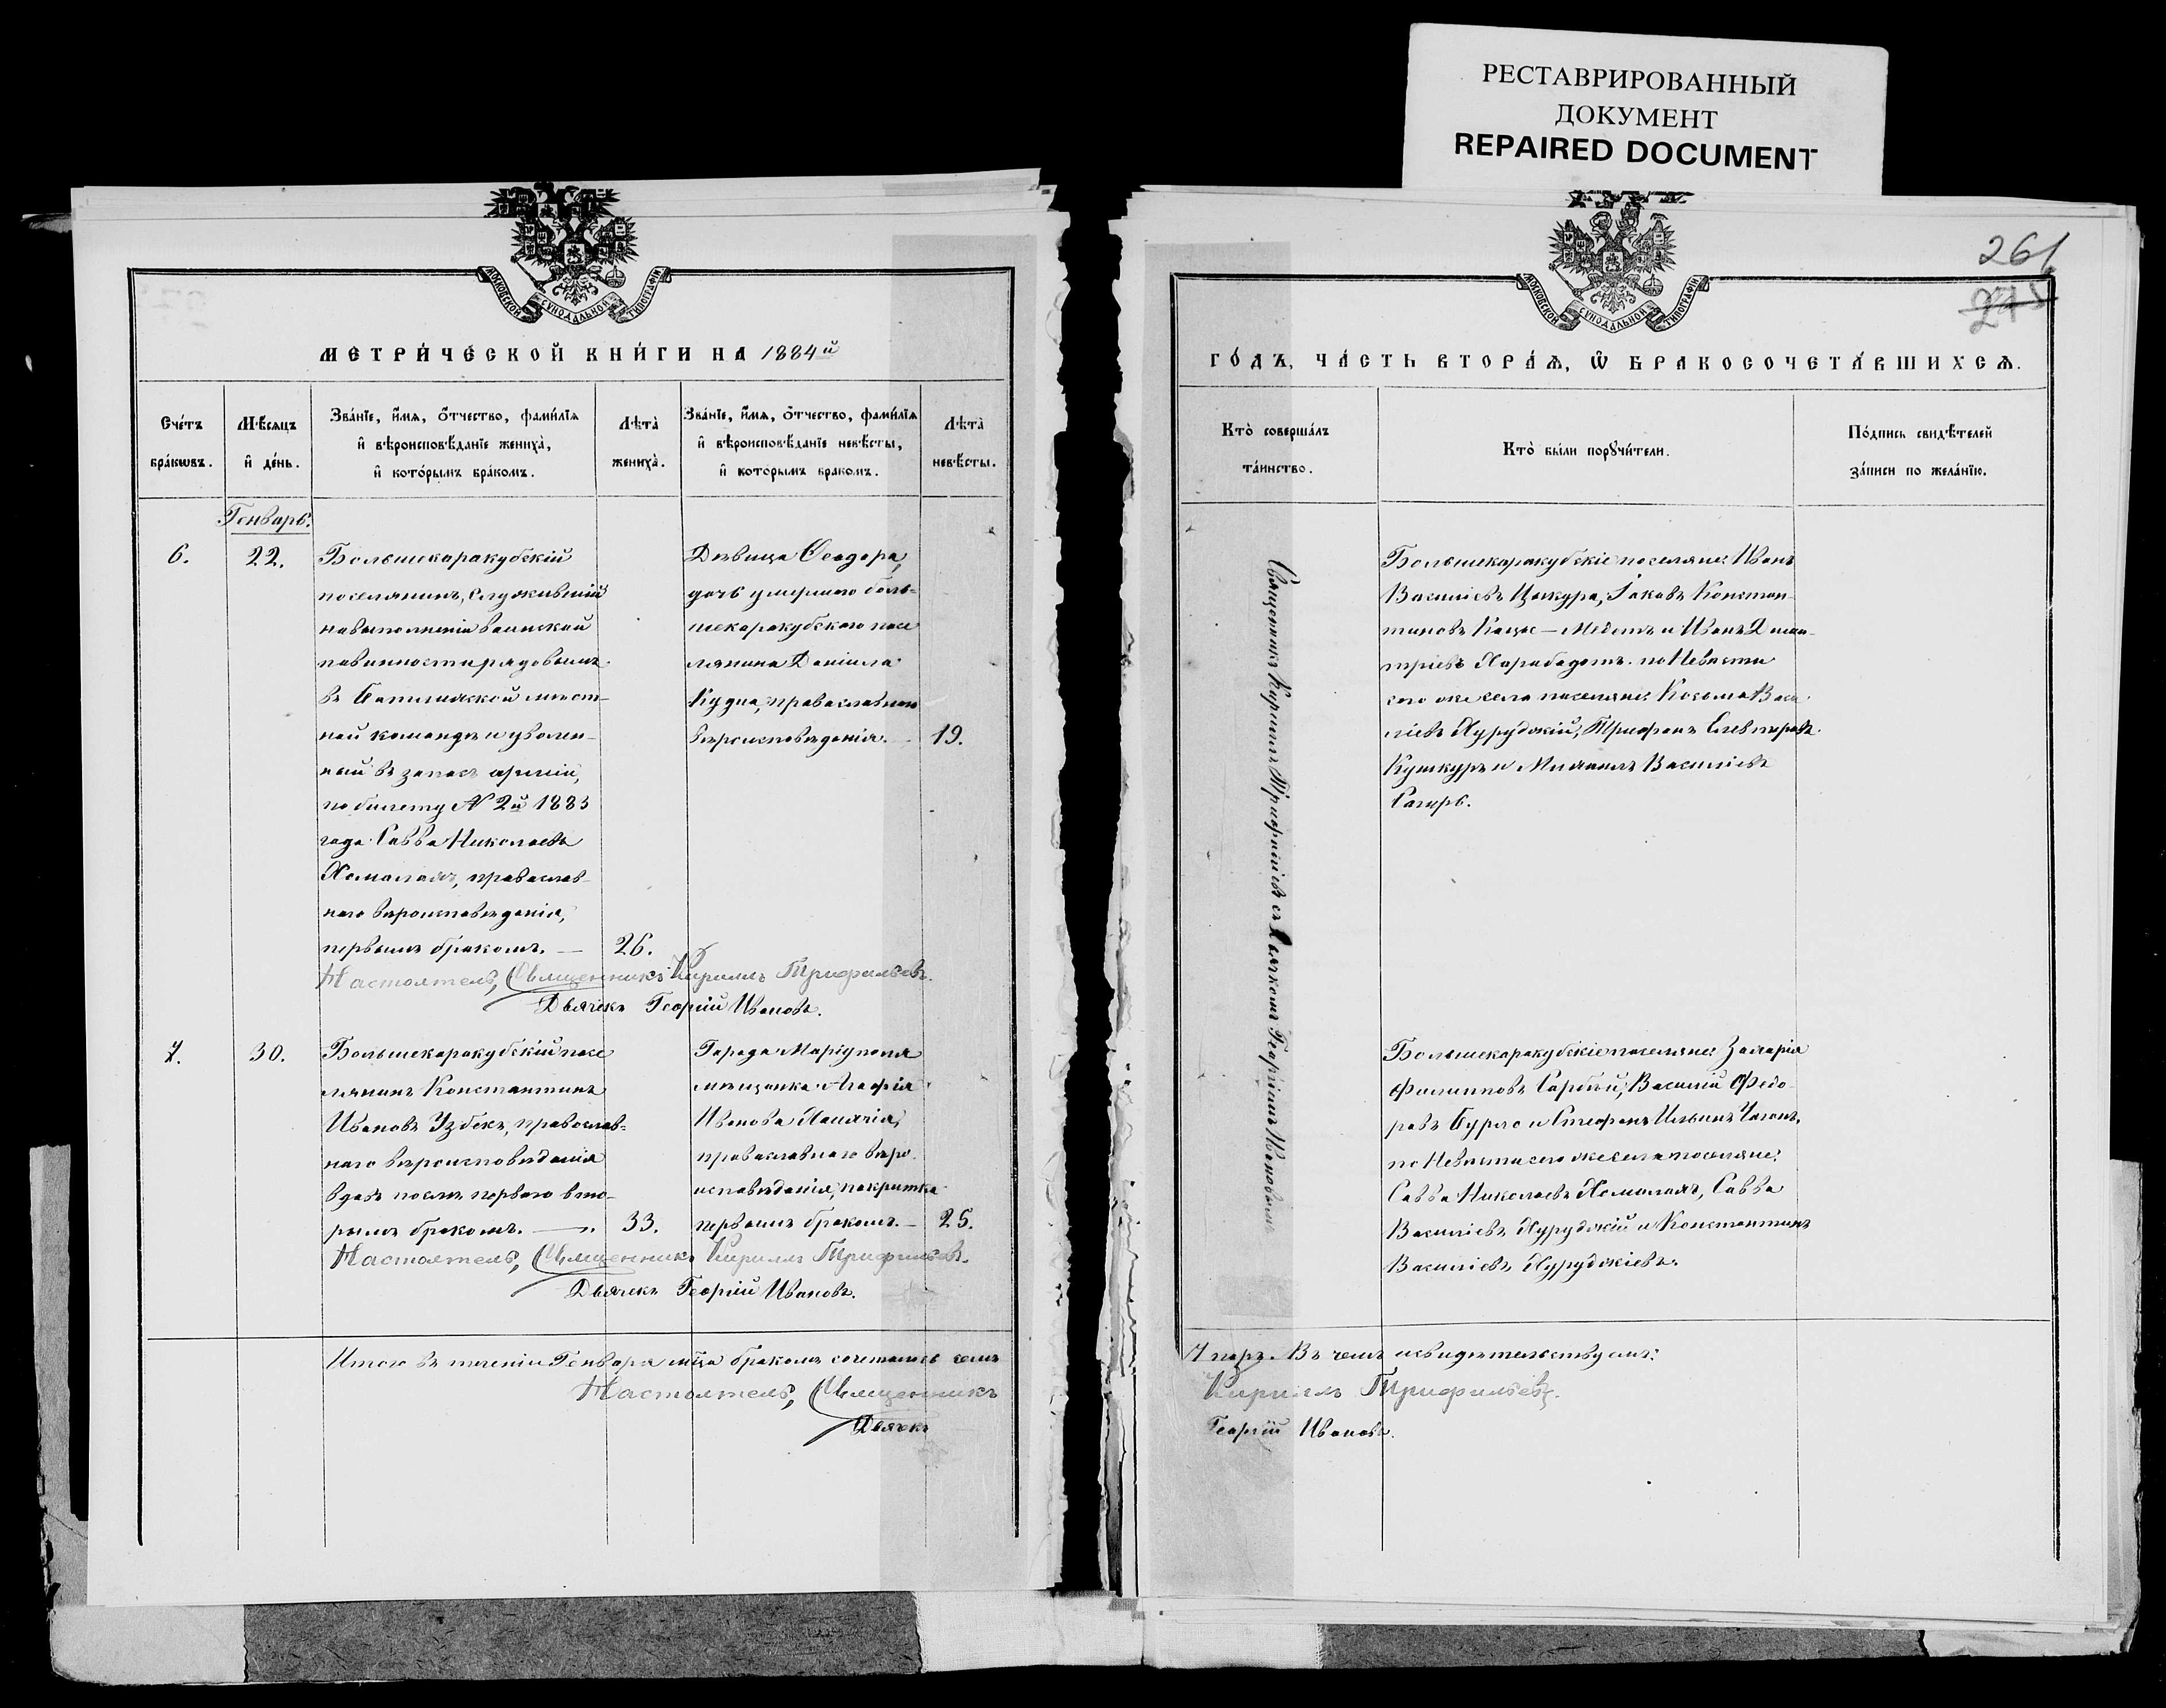 РЕСТАВРИРОВАННЫЙ
ДОКУМЕНТ
REPAIRED DOCUMENT
МОСКОВСКОЙ СѴНОДАЛЬНОЙ ТИПОГРАФІИ
МЕТРИ́ЧЕСКОЙ КНИ́ГИ НА 1884й
Сче́тъ бра́кѡвъ.
Мѣ́сяцъ и҆ де́нь.
Зва́нїе, и҆́мѧ, ѻ҆́тчество, фами́лїѧ
и҆ вѣроисповѣ́данїе жениха̀,
и҆ кото́рымъ бра́комъ.
Лѣта̀ жениха̀.
Зва́нїе, и҆́мѧ, ѻ҆́тчество, фами́лїѧ
и҆ вѣроисповѣ́данїе невѣ́сты,
и҆ кото́рымъ бракомъ.
Лѣта̀ невѣ́сты.
Генварь.
6.
22.
Большекаракубскій
поселянинъ, служившій
на выполненіи воинской
повинности рядовымъ
въ мѣст-
ной командѣ и уволен-
ный въ запасъ арміи,
по билету № 2й 1883
года Савва Николаевъ
Хомалахъ, православ-
наго вѣроисповѣданія,
первымъ бракомъ. —
26.
Дѣвица Ѳеодора,
дочь умершаго боль-
шекаракубскаго посе
лянина Даніила
Кудна, православнаго
вѣроисповѣданія. —
19.
Настоятель, Священникъ Кириллъ Трифильевъ.
Дьячекъ Георгій Ивановъ.
7.
30.
Большекаракубскій посе
лянинъ Константинъ
Ивановъ Узбекъ, православ-
наго вѣроисповѣданія
вдовъ послѣ перваго вто-
рымъ бракомъ. —
33.
Города Маріуполя
мѣщанка Агафія
Иванова
православнаго вѣро
исповѣданія, покрытка
первымъ бракомъ. —
25.
Настоятель, Священникъ Кириллъ Трифильевъ.
Дьячекъ Георгій Ивановъ.
Итого въ теченіи Генваря мца бракомъ сочетались семь
Настоятель, Священникъ
Дьячекъ
261
275
МОСКОВСКОЙ СѴНОДАЛЬНОЙ ТИПОГРАФІИ
ГО́ДЪ, ЧА́СТЬ ВТОРА́Ѧ, Ѽ БРАКОСОЧЕТА́ВШИХСѦ.
Кто̀ соверша́лъ
та́инство.
Кто̀ бы́ли порꙋчи́тели.
По́дпись свидѣ́телей
за́писи по жела́нїю.
Священникъ Кириллъ Трифильевъ съ Дьячкомъ Георгіемъ Ивановымъ
Большекаракубскіе поселяне: Иванъ
Василіевъ Цокура, Іаковъ Констан-
тиновъ и Иванъ Дими-
тріевъ Харабадотъ. по Невѣсти
сего же села поселяне: Косьма Васи
ліевъ Хуруджій, Трифонъ Елевтеровъ
Кушкуръ и Михаилъ Василіевъ
Сагирь.
Большекаракубскіе поселяне: Захарія
Филипповъ Сарбей, Василій Федо-
ровъ Бурло и Стефанъ Ильинъ
по Невѣсти сего же села поселяне:
Савва Николаевъ Хомалахъ, Савва
Василіевъ Хуруджій и Константинъ
Василіевъ Хуруджіевъ.
7 паръ. Въ чемъ и свидѣтельствуемъ:
Кириллъ Трифильевъ.
Георгій Ивановъ.